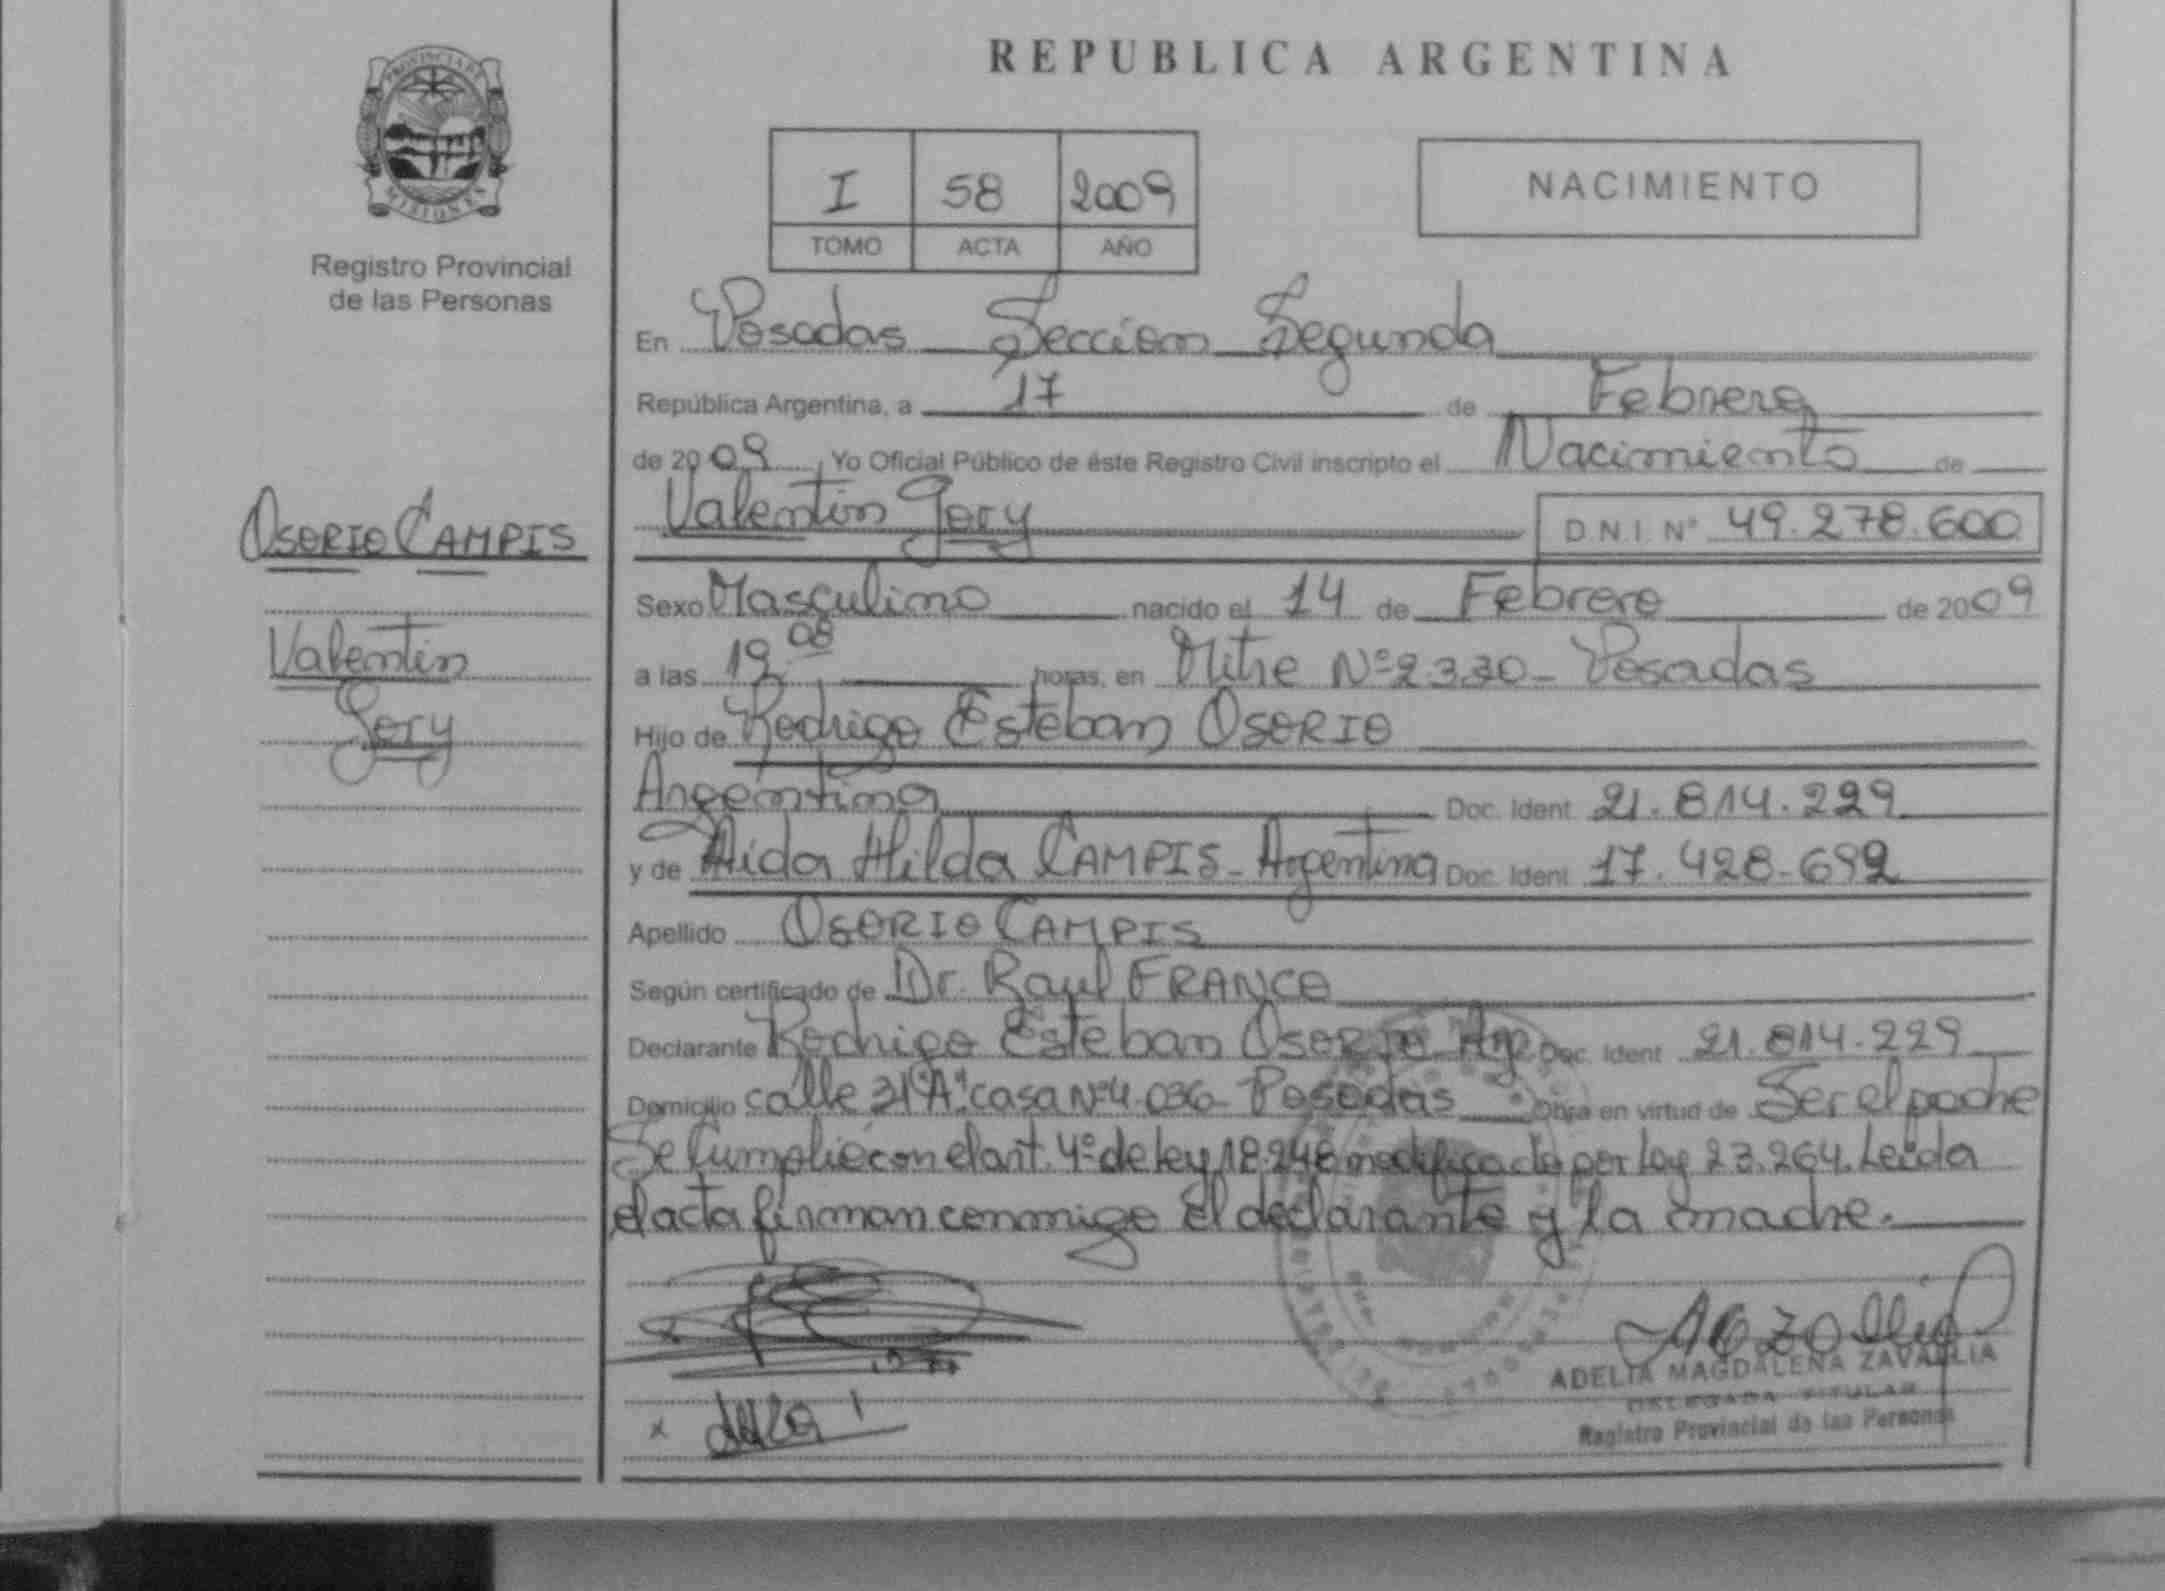 PROVINCIA DE
MISIONES
Registro Provincial
de las Personas
OSORIO CAMPIS
Valentin
Jory
REPUBLICA ARGENTINA
I 58 2009
TOMO ACTA AÑO
NACIMIENTO
En Posadas Seccion Segunda
República Argentina, a 17 de Febrero
de 2009, Yo Oficial Público de éste Registro Civil inscripto el Nacimiento de
Valentin Jory D.N.I. Nº 49.278.600
Sexo Masculino nacido el 14 de Febrero de 2009
a las 19 08 horas, en Mitre Nº 2.330 - Posadas
Hijo de Rodrigo Esteban OSORIO
Argentina Doc. Ident. 21.814.229
y de Aida Hilda CAMPIS - Argentina Doc. Ident. 17.428.692
Apellido OSORIO CAMPIS
Según certificado de Dr. Raul FRANCO
Declarante Rodrigo Esteban OSORIO Arg. Doc. Ident. 21.814.229
Domicilio calle 31 "A" casa Nº 4.036 - Posadas Obra en virtud de Ser el padre
Se Cumplió con el art. 4º de ley 18.248 modificado por ley 23.264. Leida
el acta firman conmigo El declarante y la madre.
ADELIA MAGDALENA ZAVALLIA
DELEGADA TITULAR
Registro Provincial de las Personas